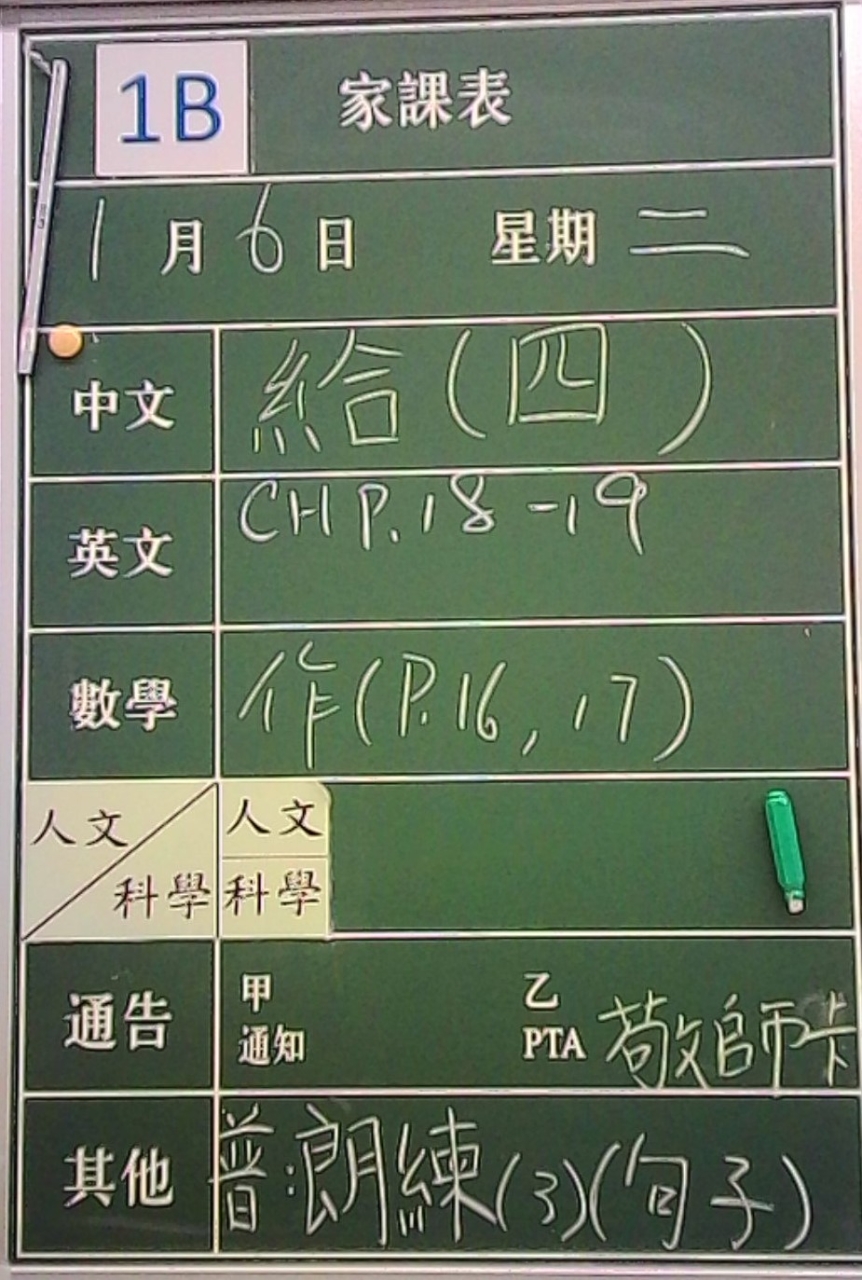 1B 家課表
1月6日 星期二
中文 給(四)
英文 CH P.18-19
數學 作(P.16, 17)
人文 科學 人文 科學
通告 甲 通知 乙 PTA 敬師卡
其他 普:朗練(3)(句子)